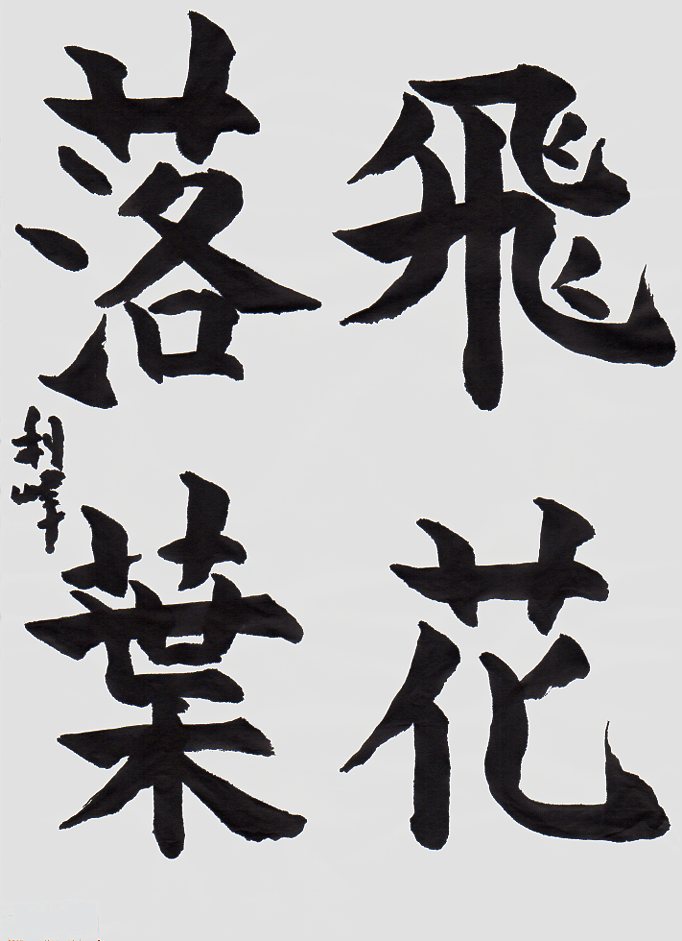 飛花
落葉
利峰